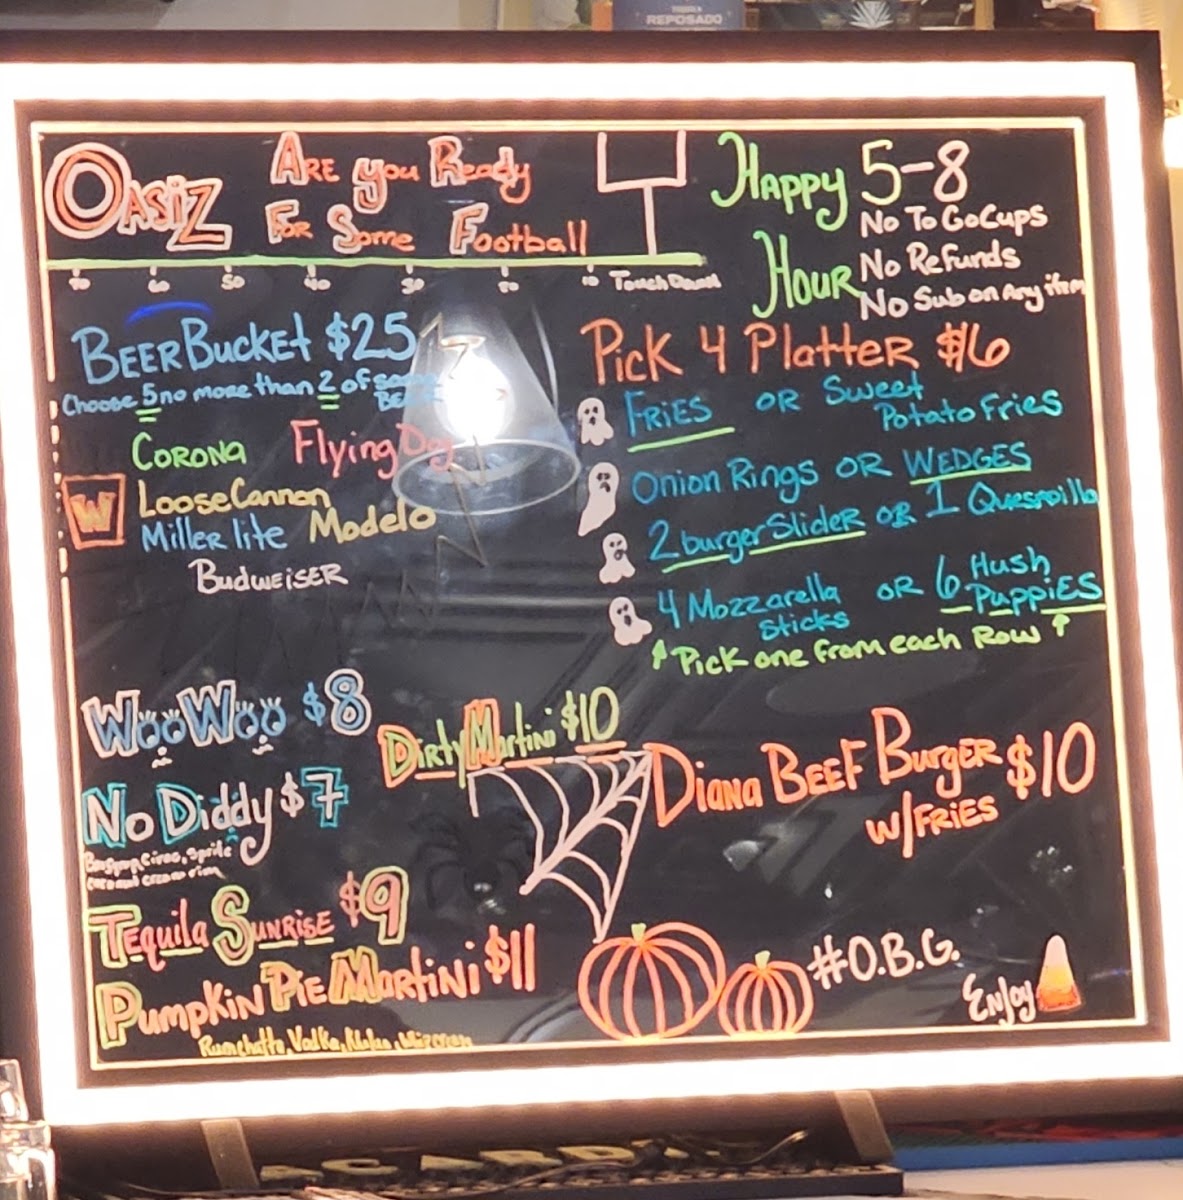 REPOSADO
OASIZ
ARE you Ready
FOR Some Football
HAPPY HOUR 5-8
No To Go Cups
No Refunds
No Sub on Any item
70 60 50 40 30 20 10 TouchDown
BEER BUCKET $25
Choose 5 no more than 2 of same
BEER
CORONA Flying Dog
W
Loose Cannon
Miller lite Modelo
BUDWEISER
Pick 4 Platter $16
FRIES OR Sweet
Potato Fries
Onion Rings OR WEDGES
2 burger SlideR OR 1 Quesadilla
4 Mozzarella
Sticks
OR 6 Hush
PuppiES
Pick one from each Row
WooWoo $8
Dirty Martini $10
No Diddy $7
Diana BEEF BURGER $10
W/FRIES
TEquila SUNRISE $9
PumpKin PiE Martini $11
Rumchatta, Vodka,
#O.B.G.
ENjoy